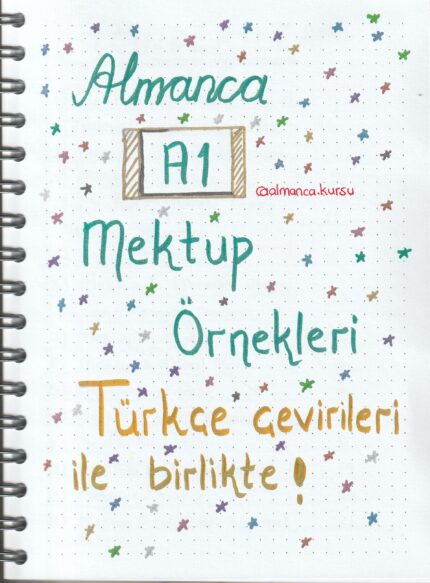 Almanca
A1
@almanca.kursu
Mektup
Örnekleri
Türkçe çevirileri
ile birlikte!